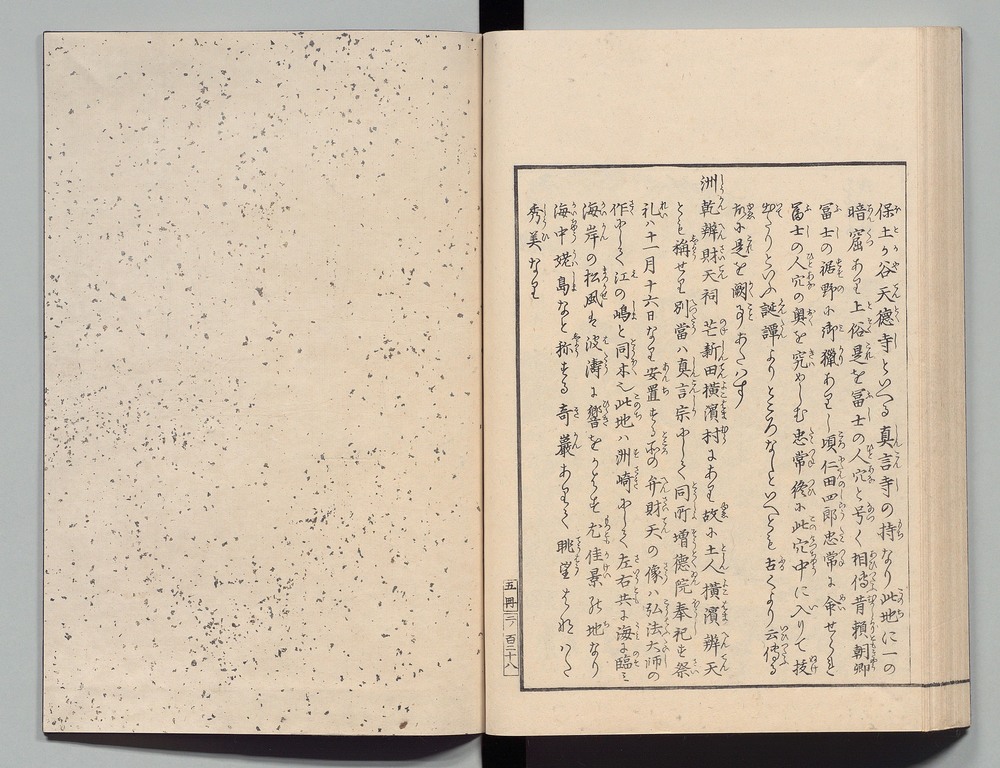 保土か谷天徳寺といへる真言寺の持なり此地に一の
暗窟あり土俗是を冨士の人穴と号く相傳昔頼朝卿
冨士の裾野に御獵ありし頃仁田四郎忠常に命せられ
冨士の人穴の奥を究めしむ忠常終に此穴中に入りて抜
出たりといふ誕譚よりところなしといへとも古くより云傳る
故に是を闕事あたはす
洲乾辨財天祠 芒新田横濱村にあり故に土人横濱辨天
とも稱せり別當ハ真言宗にして同所増徳院奉祀す祭
礼ハ十一月十六日なり安置する所の弁財天の像ハ弘法大師の
作にして江の嶋と同木也此地ハ洲崎にして左右共に海に臨ミ
海岸の松風は波濤に響をかはす尤佳景の地なり
海中姥島なと称する奇巖ありて眺望はなはた
秀美なり
五冊 二ノ百三十八